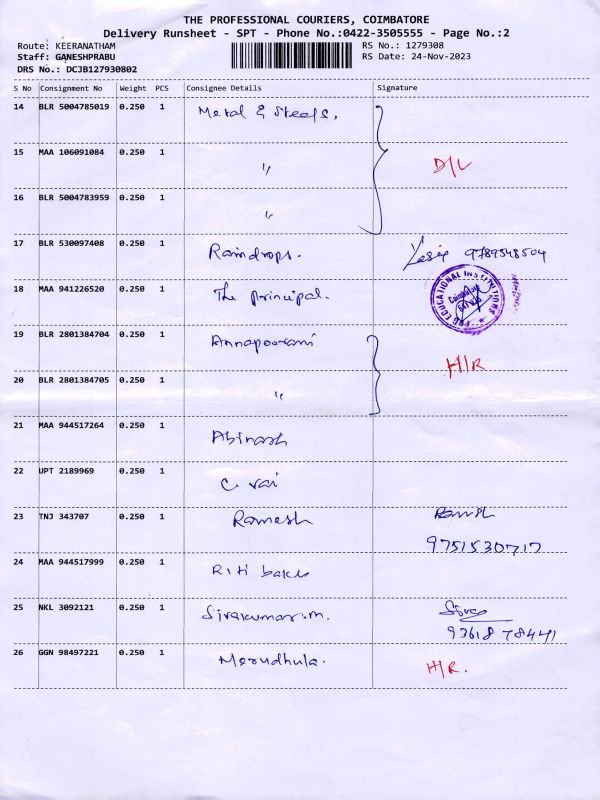 THE PROFESSIONAL COURIERS, COIMBATORE
Delivery Runsheet - SPT - Phone No.:0422-3505555 - Page No.:2
Route: KEERANATHAM RS No.: 1279308
Staff: GANESHPRABU RS Date: 24-Nov-2023
DRS No.: DCJB127930802
S No Consignment No Weight PCS Consignee Details Signature
14 BLR 5004785019 0.250 1 Metal & Steels,
15 MAA 106091084 0.250 1 " D/L
16 BLR 5004783959 0.250 1 "
17 BLR 530097408 0.250 1 Raindrops. 9789548504
18 MAA 941226520 0.250 1 The principal. EDUCATIONAL INSTITUTIONS Coimbatore
19 BLR 2801384704 0.250 1 Annapoorani H/R
20 BLR 2801384705 0.250 1 "
21 MAA 944517264 0.250 1 Abinash
22 UPT 2189969 0.250 1 C. vai
23 TNJ 343707 0.250 1 Ramesh Ramesh
9751530717
24 MAA 944517999 0.250 1 Riti
25 NKL 3092121 0.250 1 Sivakumar.m. Siva
93618 78441
26 GGN 98497221 0.250 1 Merudhula. H/R.